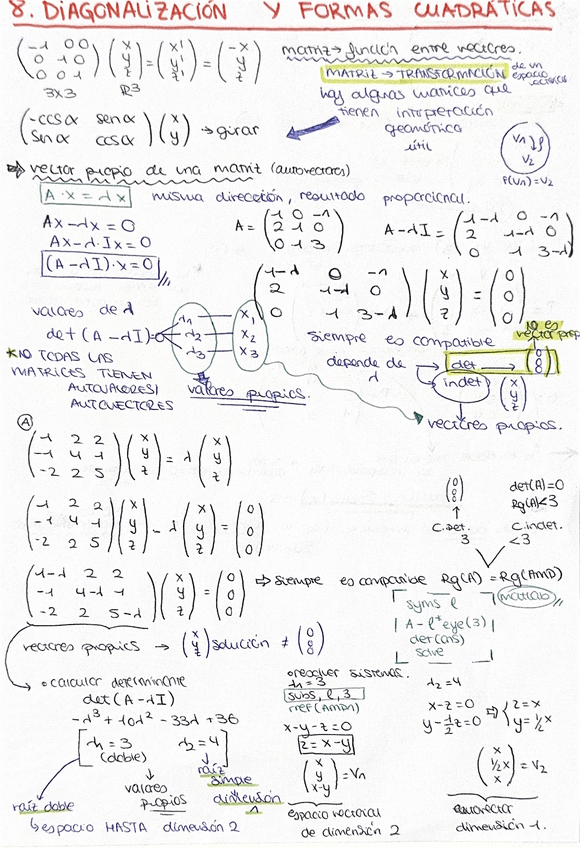 8. DIAGONALIZACIÓN Y FORMAS CUADRÁTICAS
(-1 0 0 / 0 1 0 / 0 0 1) (x / y / z) = (x' / y' / z') = (-x / y / z)
3x3 R³
matriz → función entre vectores.
MATRIZ → TRANSFORMACIÓN de un espacio vectorial
hay algunas matrices que
tienen interpretación
geométrica
útil
(-cos α sen α / sen α cos α) (x / y) → girar
V₁ V₂
f(V₁) = V₂
⇒ vector propio de una matriz (autovectores)
A · x = λx misma dirección, resultado proporcional.
Ax - λx = 0
Ax - λ·Ix = 0
(A - λI)·x = 0
A = (1 0 -1 / 2 1 0 / 0 1 3) A - λI = (1-λ 0 -1 / 2 1-λ 0 / 0 1 3-λ)
(1-λ 0 -1 / 2 1-λ 0 / 0 1 3-λ) (x / y / z) = (0 / 0 / 0)
valores de λ
det (A - λI) = 0
λ₁ λ₂ λ₃
x₁ x₂ x₃
valores propios.
*NO TODAS LAS
MATRICES TIENEN
AUTOVALORES/
AUTOVECTORES
siempre es compatible
no es vector prop
depende de λ
det → (0 / 0 / 0)
indet (x / y / z)
vectores propios.
A
(-1 2 2 / -1 4 1 / -2 2 5) (x / y / z) = λ (x / y / z)
(1 2 2 / -1 4 1 / -2 2 5) (x / y / z) - λ (x / y / z) = (0 / 0 / 0)
(0 / 0 / 0)
↑
C. Det.
3
det(A) = 0
Rg(A) < 3
C. indet.
< 3
(1-λ 2 2 / -1 4-λ 1 / -2 2 5-λ) (x / y / z) = (0 / 0 / 0) ⇒ siempre es compatible Rg(A) = Rg(AMD)
matlab
syms l
A - l*eye(3)
det(ans)
solve
vectores propios → (x / y / z) solución ≠ (0 / 0 / 0)
• calcular determinante
det(A - λI)
-λ³ + 10λ² - 33λ + 36
λ₁ = 3 (doble) λ₂ = 4
raíz doble
↳ espacio HASTA dimensión 2
valores propios
raíz simple
dimensión 1
• resolver sistemas.
λ₁ = 3
subs, l, 3
rref(AMPD)
x - y - z = 0
z = x - y
(x / y / x-y) = V₁
espacio vectorial
de dimensión 2
λ₂ = 4
x - z = 0
y - 1/2 z = 0 ⇒ { z = x / y = 1/2 x
(x / 1/2 x / x) = V₂
autovector
dimensión 1.